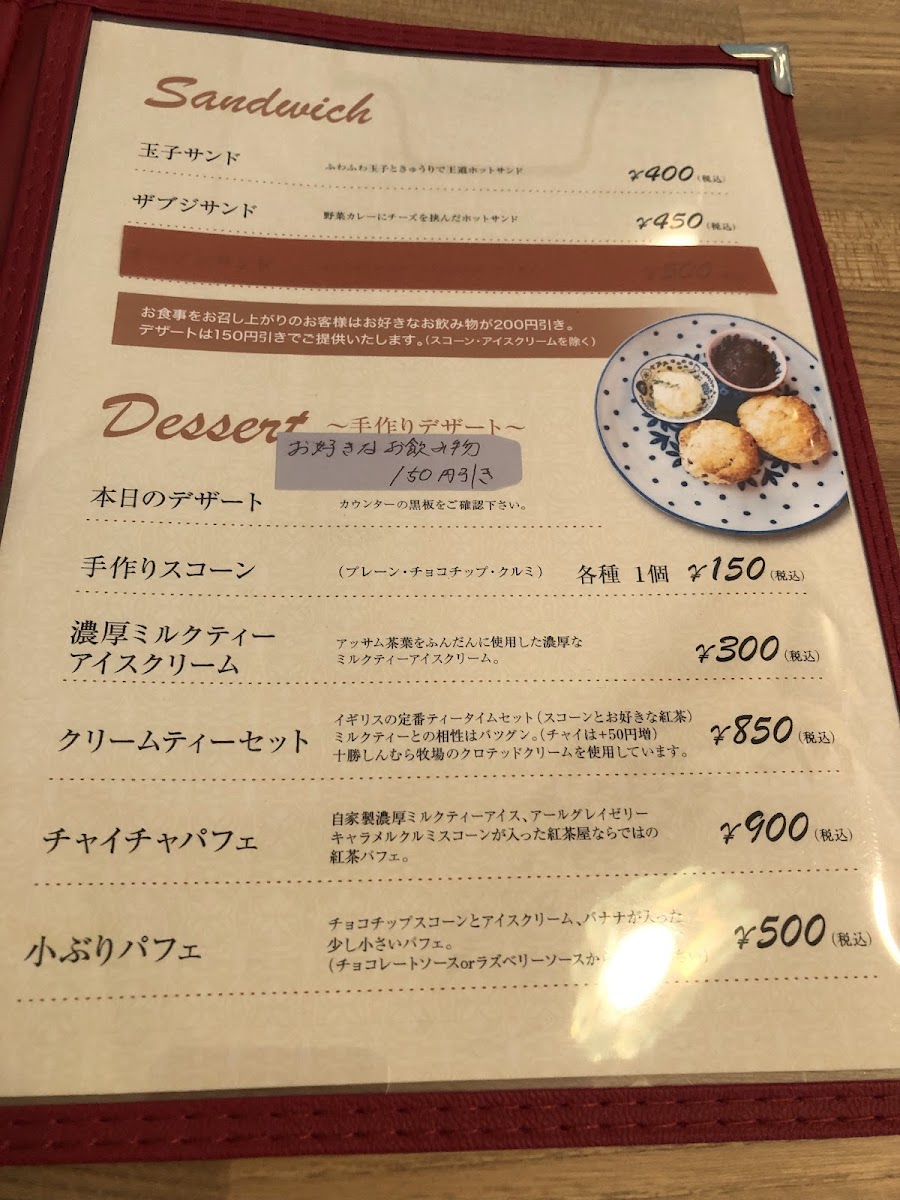 Sandwich
玉子サンド ふわふわ玉子ときゅうりで王道ホットサンド ¥400(税込)
ザブジサンド 野菜カレーにチーズを挟んだホットサンド ¥450(税込)
お食事をお召し上がりのお客様はお好きなお飲み物が200円引き。
デザートは150円引きでご提供いたします。(スコーン・アイスクリームを除く)
Dessert ~手作りデザート~
お好きなお飲み物
150円引き
本日のデザート カウンターの黒板をご確認下さい。
手作りスコーン (プレーン・チョコチップ・クルミ) 各種 1個 ¥150(税込)
濃厚ミルクティー
アイスクリーム
アッサム茶葉をふんだんに使用した濃厚な
ミルクティーアイスクリーム。
¥300(税込)
クリームティーセット
イギリスの定番ティータイムセット(スコーンとお好きな紅茶)
ミルクティーとの相性はバツグン。(チャイは+50円増)
十勝しんむら牧場のクロテッドクリームを使用しています。
¥850(税込)
チャイチャパフェ
自家製濃厚ミルクティーアイス、アールグレイゼリー
キャラメルクルミスコーンが入った紅茶屋ならではの
紅茶パフェ。
¥900(税込)
小ぶりパフェ
チョコチップスコーンとアイスクリーム、バナナが入った
少し小さいパフェ。
(チョコレートソースorラズベリーソースか
¥500(税込)